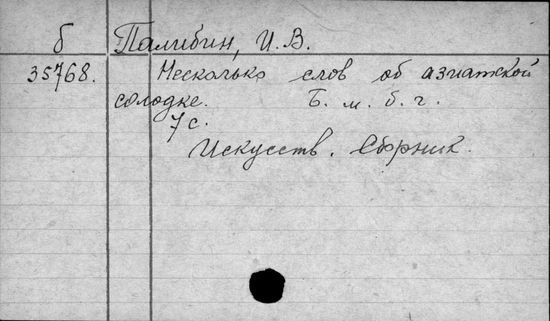 б Палибин, И. В.
35768. Несколько слов об азиатской
солодке. Б. м. б. г.
7 с.
Искусств. Сборник.